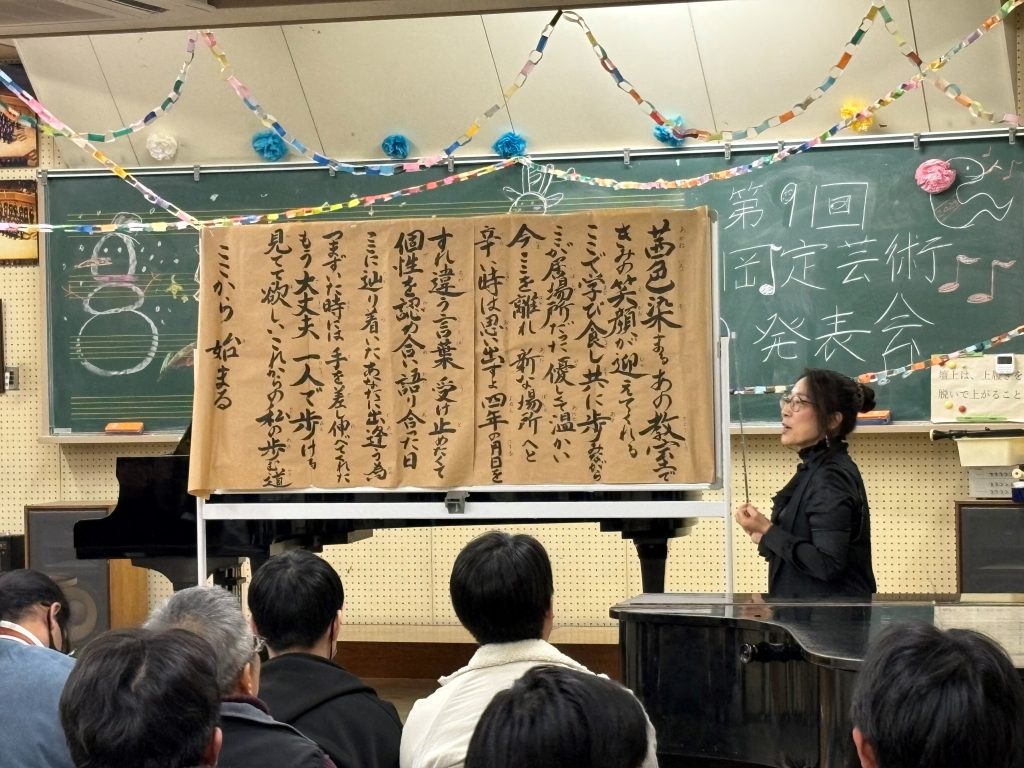 茜色染まるあの教室で
きみの笑顔が迎えてくれる
ここで学び食し共に歩みながら
ここが居場所だと優しさ温かい
今ここを離れ 新たな場所へと
辛い時は思い出すよ四年の月日を
すれ違う言葉 受け止めたくて
個性を認め合い語り合った日
ここに辿り着いたあなたに出逢う為
つまずいた時には 手を差し伸べてくれた
もう大丈夫 一人で歩ける
見てて欲しいこれからの私の歩む道
ここから 始まる
第9回
岡定芸術
発表会
壇上は、上履きを
脱いで上がること